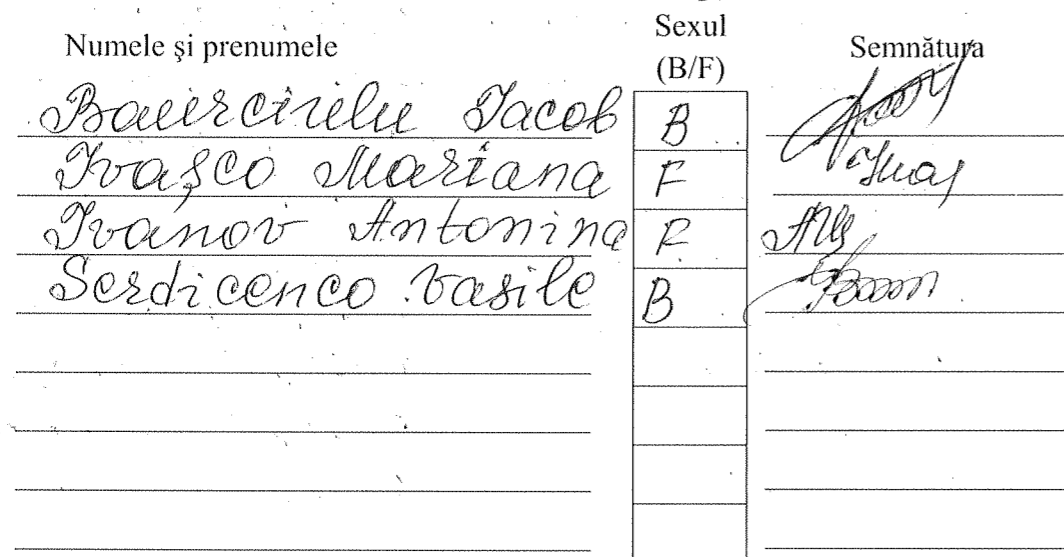 Numele şi prenumele Sexul (B/F) Semnătura
Iacob B
Ivaşco Mariana F
Ivanov Antonina F
Serdicenco Vasile B